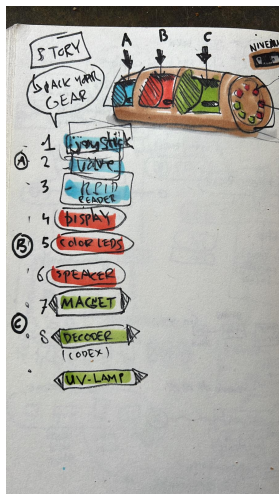 STORY
A B C
NIVEAU
STACK YOUR
GEAR
1 joystick
A 2 VALVE
3 RFID
READER
4 DISPLAY
B 5 COLOR LEDS
6 SPEAKER
7 MAGNET
C
8 DECODER
(CODEX)
UV-LAMP